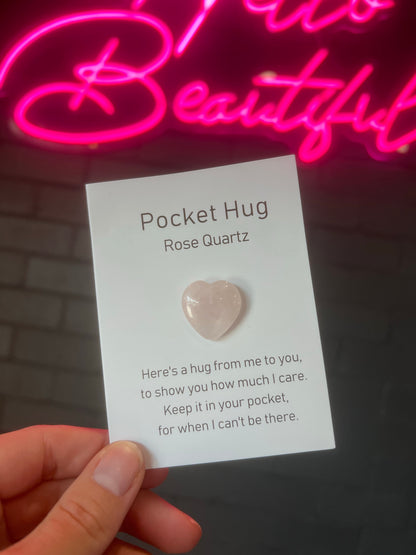 Hello
Beautiful
Pocket Hug
Rose Quartz
Here's a hug from me to you,
to show you how much I care.
Keep it in your pocket,
for when I can't be there.